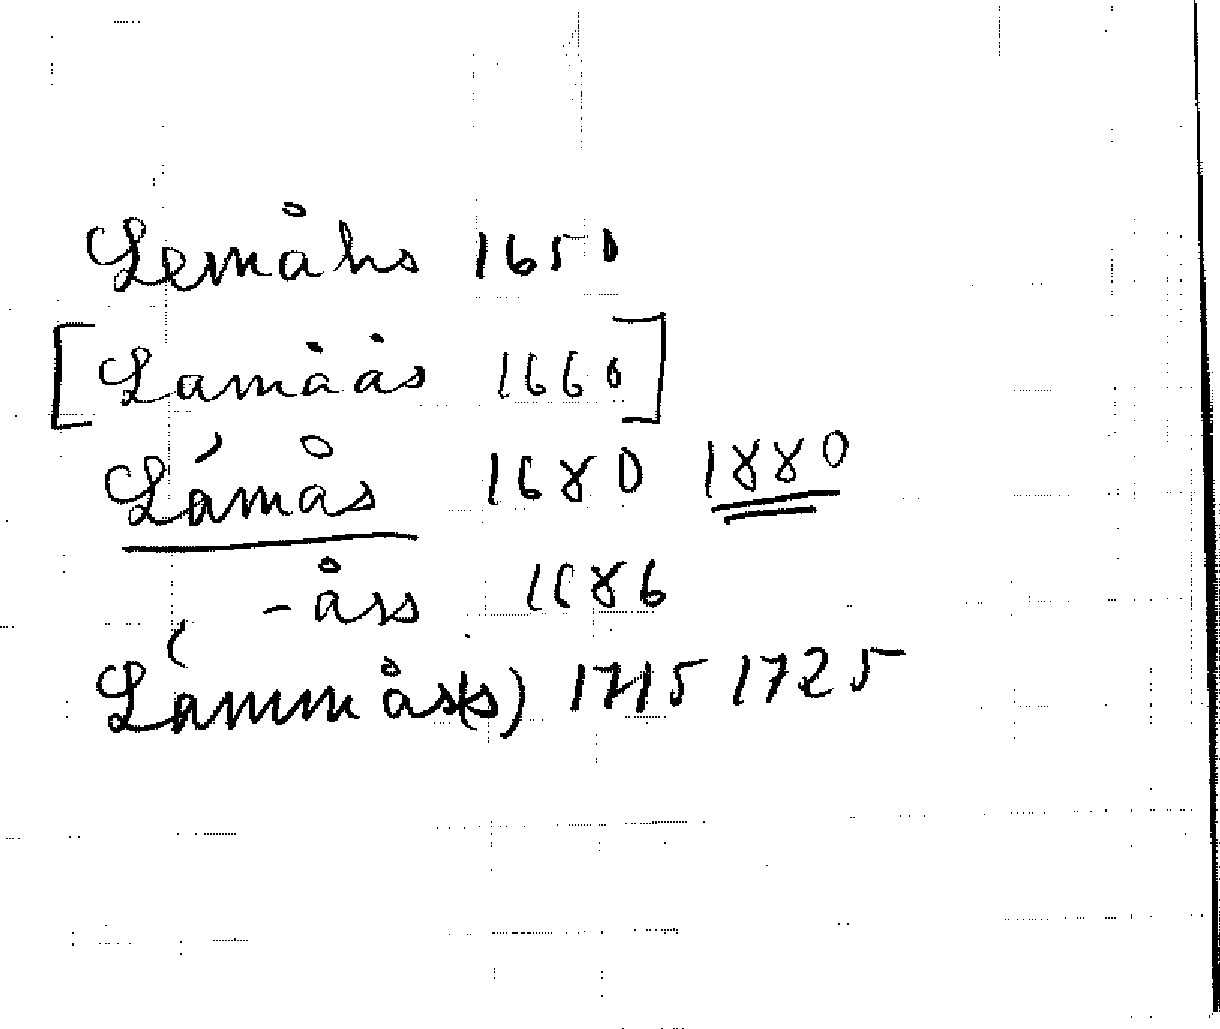 Lemåhs 1650
[Lamåås 1660]
Lámås 1680 1880
-åss 1686
Lámmås(s) 1715 1725